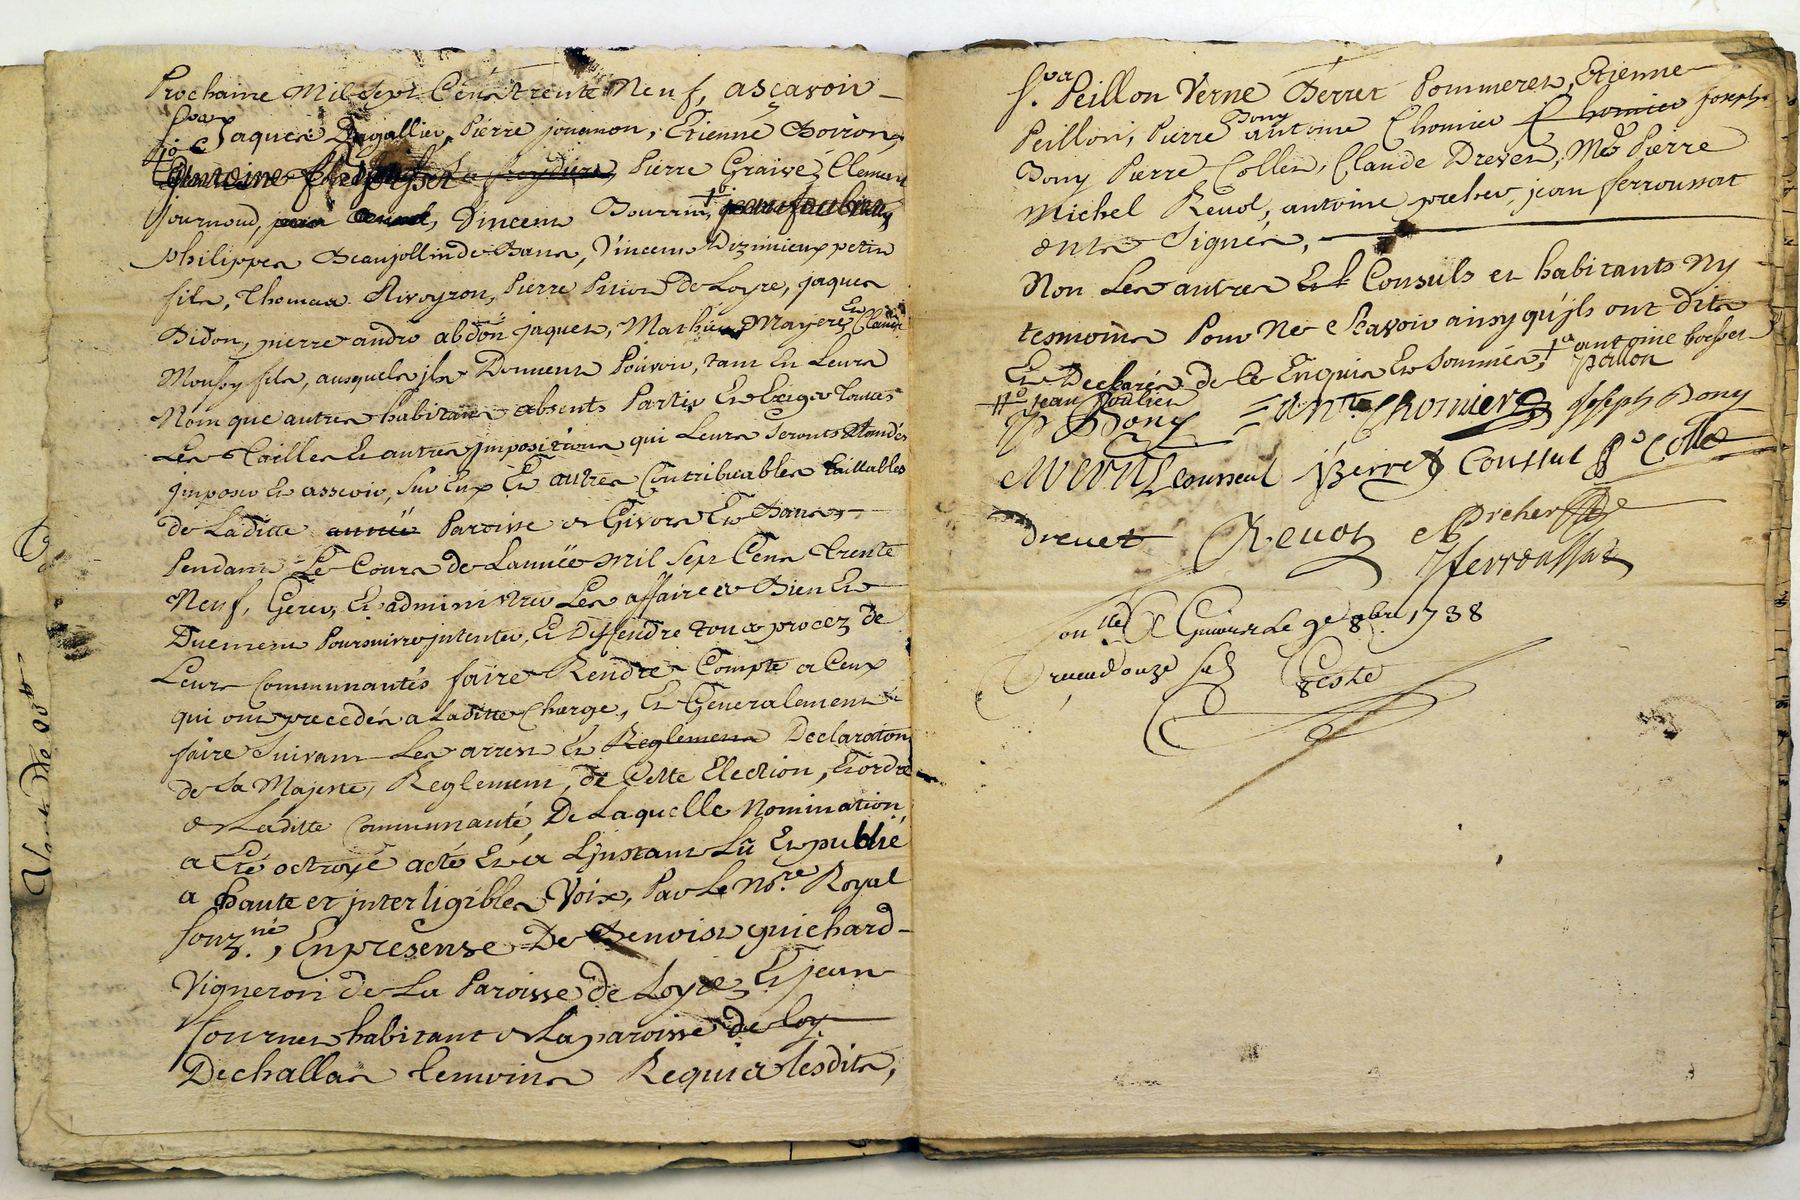 Prochaine Mil sept Cens trente Neuf, ascavoir
Jaques Dagallier, Pierre jouanon, Etienne Boiron,
Antoine Pierre Graive, Clement
journoud, Vincent Bourrin,
philippes Beaujollin de Bans, Vincent Dizimieux petit
fils, Thomas Rivoyron, Pierre de Loyre, jaques
Bidon, pierre andre abdon jaques, Mathieu Mayere, Et Claude
fils, ausquels jls Donnent Pouvoir, tant En Leurs
Nom que autres habitans absents Partir Et Exiger toutes
Les Tailles Et autres Jmpositions qui Leurs seronts Mandés
jmposer Et asseoir, sur Eux Et autres Contribuables taillables
de Laditte année Paroisse de Givors Et Bans,
Pendant Le Cours de L'année mil sept Cens trente
Neuf, Gerer, Et administrer Les affaires Bien Et
Duement Poursuivre jntenter, Et Deffendre tous procez de
Leurs Communautés faire Rendre Compte a Ceux
qui ont precedés a Laditte Charge, Et Generalement
faire suivant Les arrest Et Reglemens Declaraton
de Sa Majesté, Reglement, de Cette Election, Et ordre
de Laditte Communauté, De Laquelle Nomination
a Eté octroyé acté Et a Ljnstant Lû Et publié
a haute et jnterligibles Voix, Par Le No.re Royal
souz.né, En presense De Benoist guichard
Vigneron de La Paroisse de Loyre Et jean
fournet habitant de La paroisse de Loy
Dechallas temoins Requis lesdits,
Srs. Peillon Verne Berret Pommeret, Etienne
Peillon, Pierre Bony antoine Thomier Thomier joseph
Bony Pierre Collet, Claude Drevet, Me Pierre
Michel Revol, antoine precher, jean ferroussat
onts signés,
Non Les autres Et Consuls et habitants Ny
tesmoins Pour Ne scavoir ainsy qu'jls ont dits
Et Declarés de Ce Enquis Et sommés, antoine
jean
P Bony = ant Thomier Joseph Bony
Conseul Berret Conssul Pe Collet
Drevet Revol Precher
J ferroussat
Conlle A Givors Le 9e 8bre 1738
Receu douze sols